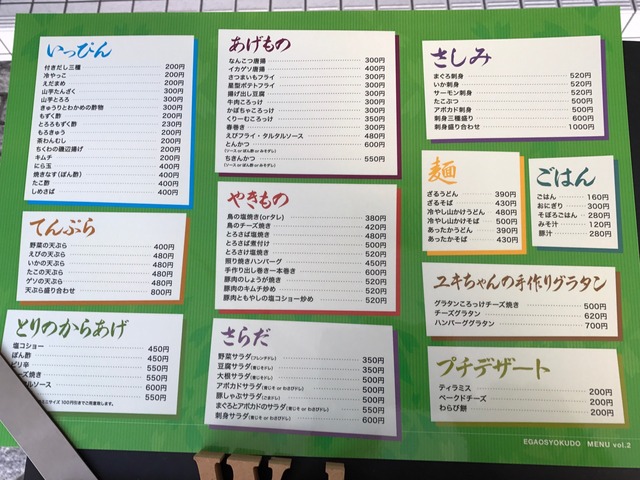 いっぴん
付きだし三種 200円
冷やっこ 200円
えだまめ 200円
山芋たんざく 300円
山芋とろろ 300円
きゅうりとわかめの酢物 300円
もずく酢 200円
とろろもずく酢 230円
もろきゅう 200円
茶わんむし 200円
ちくわの磯辺揚げ 200円
キムチ 200円
にら玉 400円
焼きなす(ぽん酢) 400円
たこ酢 400円
しめさば 400円
てんぷら
野菜の天ぷら 400円
えびの天ぷら 480円
いかの天ぷら 480円
たこの天ぷら 480円
ゲソの天ぷら 480円
天ぷら盛り合わせ 800円
とりのからあげ
塩コショー 450円
ぽん酢 450円
ピリ辛 550円
ーズ焼き 550円
ルソース 600円
550円
サイズ 100円引きでご用意致します。
あげもの
なんこつ唐揚 300円
イカゲソ唐揚 400円
さつまいもフライ 300円
星型ポテトフライ 300円
揚げ出し豆腐 300円
牛肉ころっけ 300円
かぼちゃころっけ 300円
くりーむころっけ 350円
春巻き 300円
えびフライ・タルタルソース 480円
とんかつ 600円
(ソース or ぽん酢 or みそダレ)
ちきんかつ 550円
(ソース or ぽん酢 or みそダレ)
やきもの
鳥の塩焼き(orタレ) 380円
鳥のチーズ焼き 420円
とろさば塩焼き 480円
とろさば煮付け 500円
とろさけ塩焼き 520円
照り焼きハンバーグ 450円
手作り出し巻き一本巻き 600円
豚肉のしょうが焼き 520円
豚肉のキムチ炒め 520円
豚肉ともやしの塩コショー炒め 520円
さらだ
野菜サラダ(フレンチドレ) 350円
豆腐サラダ(青じそドレ) 350円
大根サラダ(青じそドレ) 500円
アボカドサラダ(青じそ or わさびドレ) 500円
豚しゃぶサラダ(ごまドレ) 500円
まぐろとアボカドのサラダ(青じそ or わさびドレ) 550円
刺身サラダ(青じそ or わさびドレ) 600円
さしみ
まぐろ刺身 520円
いか刺身 520円
サーモン刺身 520円
たこぶつ 500円
アボカド刺身 500円
刺身三種盛り 600円
刺身盛り合わせ 1000円
麺
ざるうどん 390円
ざるそば 430円
冷やし山かけうどん 480円
冷やし山かけそば 500円
あったかうどん 390円
あったかそば 430円
ごはん
ごはん 160円
おにぎり 300円
そぼろごはん 280円
みそ汁 120円
豚汁 280円
ユキちゃんの手作りグラタン
グラタンころっけチーズ焼き 500円
チーズグラタン 620円
ハンバーググラタン 700円
プチデザート
ティラミス 200円
ベークドチーズ 200円
わらび餅 200円
EGAOSYOKUDO MENU vol.2